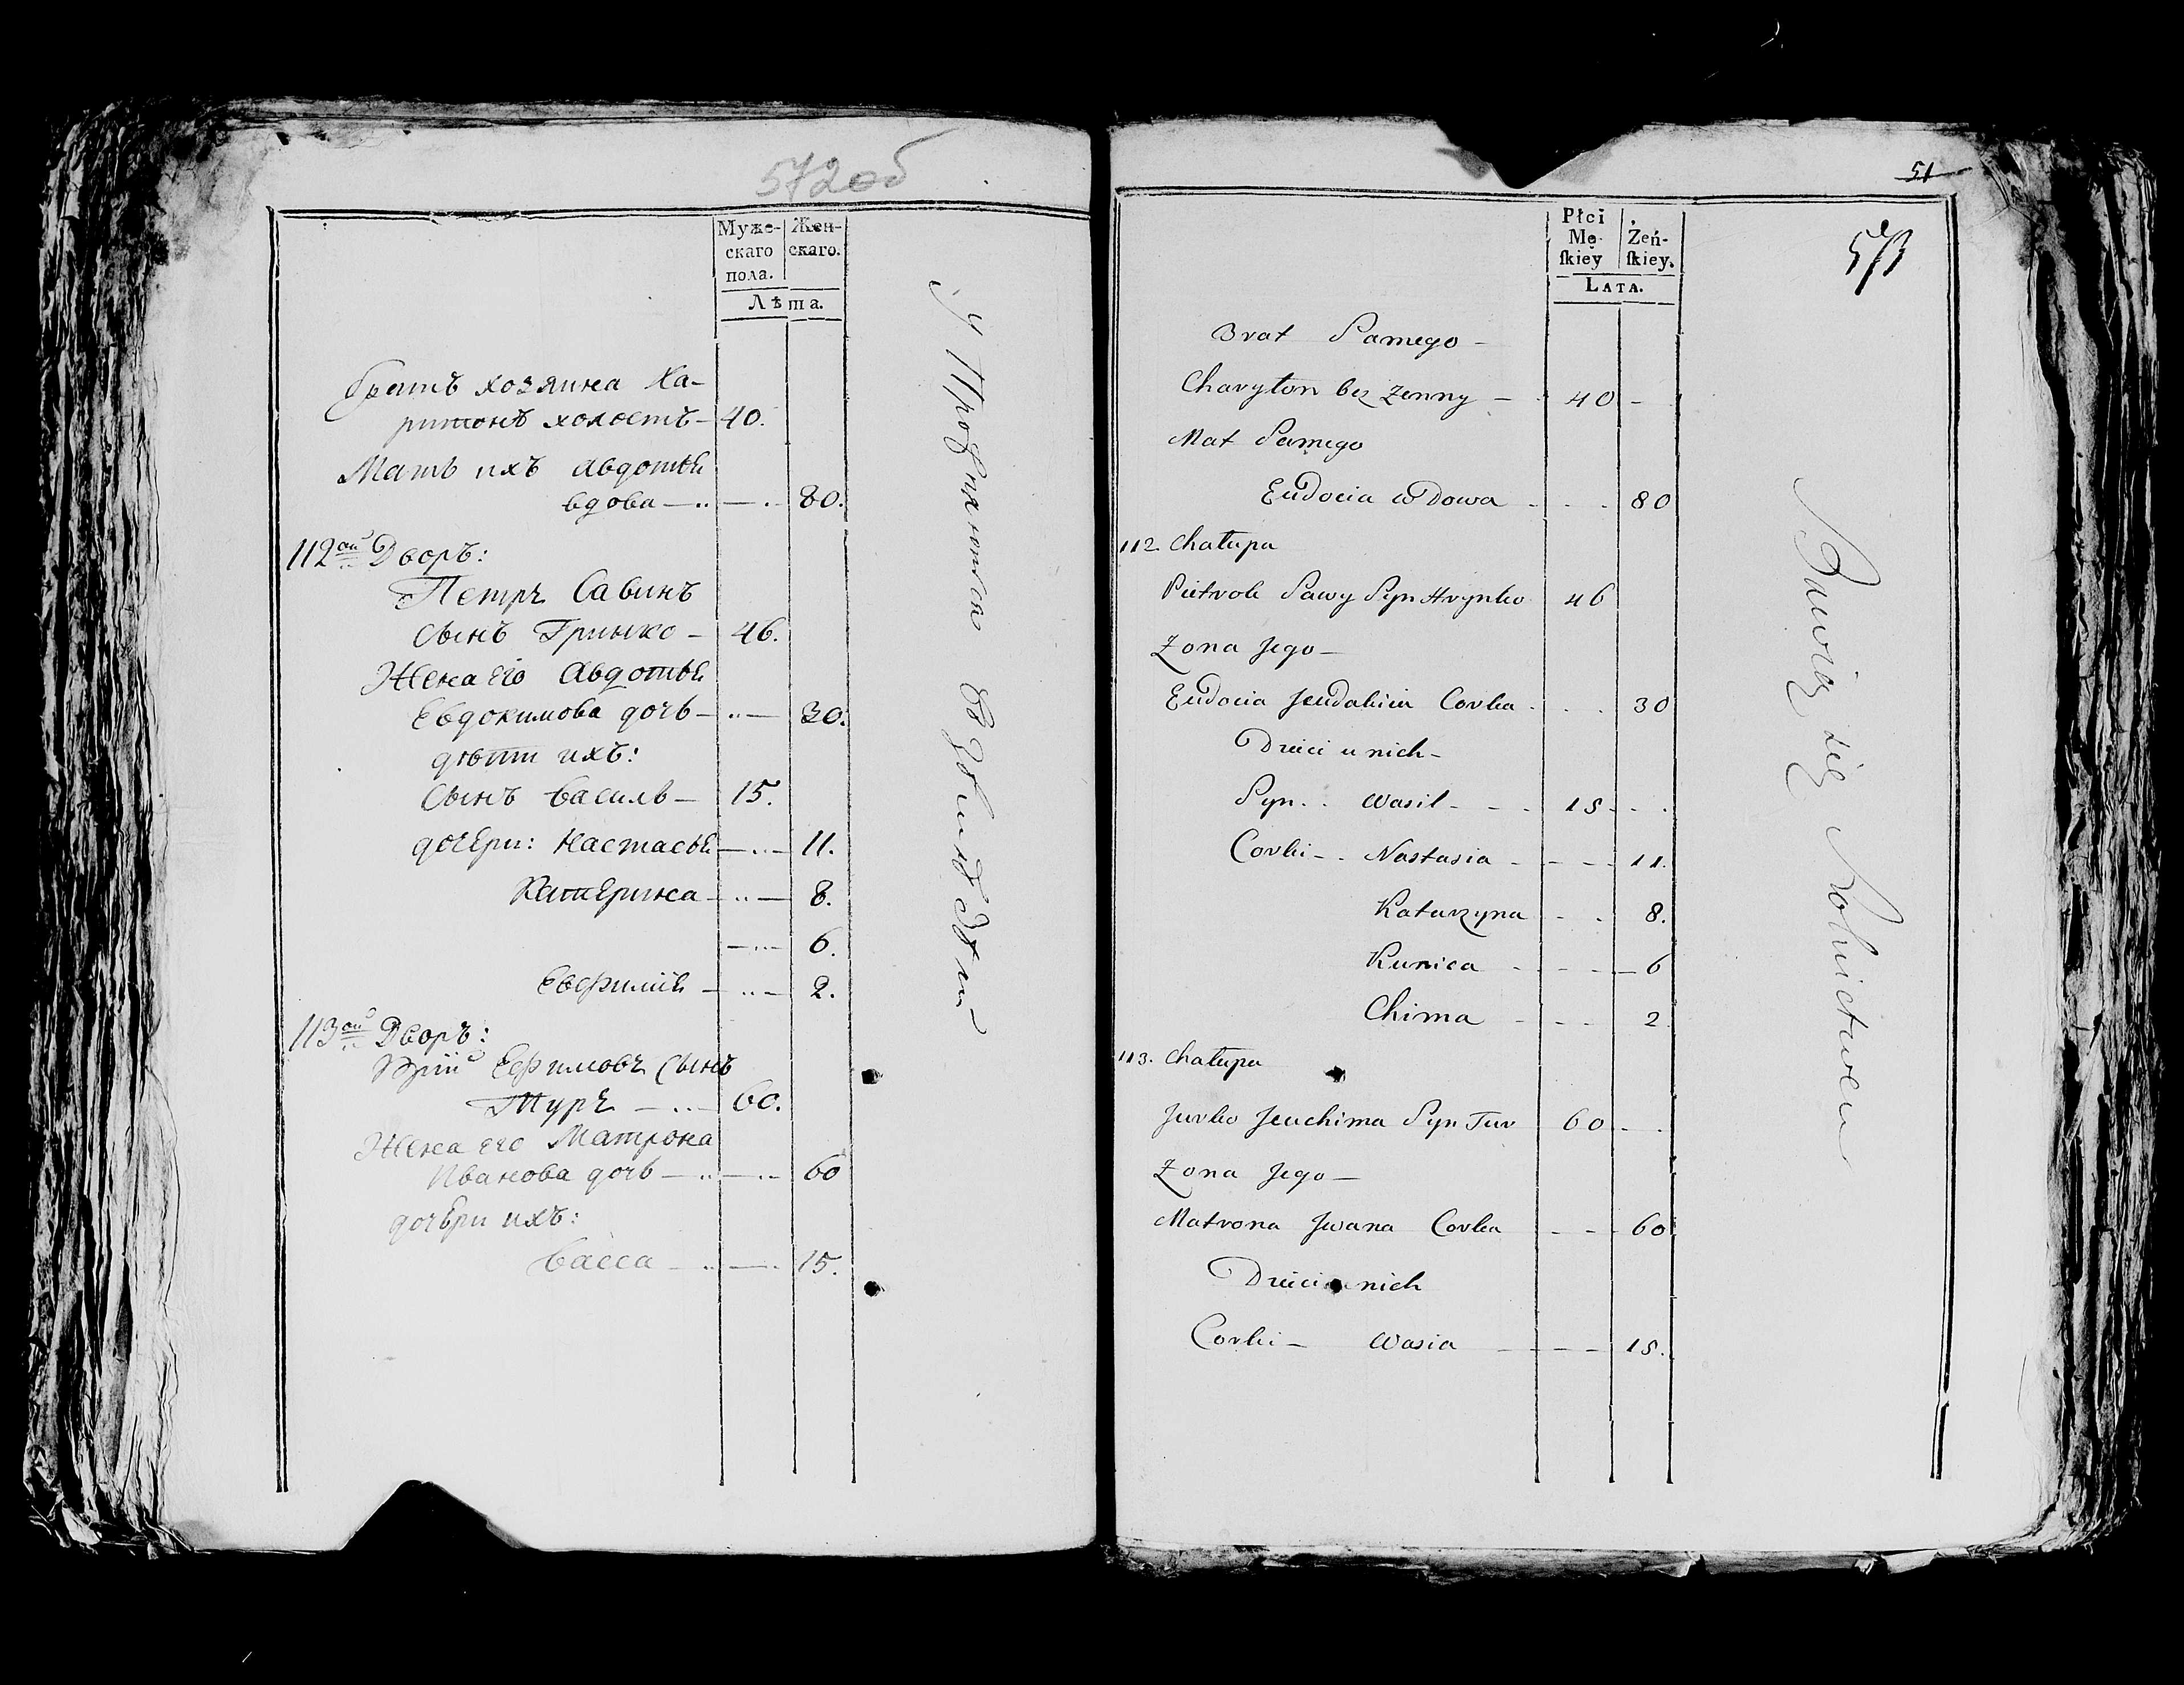 572 об
Муже-
скаго
пола.
Жен-
скаго.
Лѣта.
братъ хозяина Ха-
ритонъ холостъ — 40.
Мать ихъ Авдотья
вдова — 80.
112ой Дворъ:
Петръ Савинъ
сынъ Гринко — 46.
Жена его Авдотья
Евдокимова дочь — 30.
дѣти ихъ:
Сынъ Василь — 15.
дочери: Настасья — 11.
Катерина — 8.
— 6.
Евфимія — 2.
113ой Дворъ:
Юрій Ефимовъ сынъ
Туръ — 60.
Жена его Матрона
Иванова дочь — 60
дочери ихъ:
Васса — 15.
51
573
Płci
Mę-
skiey
Żeń-
skiey.
LATA.
Brat Samego —
Charyton bez Zenny — 40 -
Mat Samego
Eudocia wdowa - - - 80
112. Chałupa
Pietrok Sawy Syn Hrynko 46
Zona Jego —
Eudocia Jeudakima Corka - - - 30
Dzieci u nich —
Syn - - Wasil - - - 15 - -
Corki - - Nastasia - - - 11.
Katarzyna - - 8.
Kunica - - - 6
Chima - - - 2
113. Chałupa
Jurko Jeuchima Syn Tur 60 - -
Zona Jego —
Matrona Jwana Corka - - - 60
Dzieci u nich
Corki — Wasia - - - 15.
Bawią się Rolnictwem